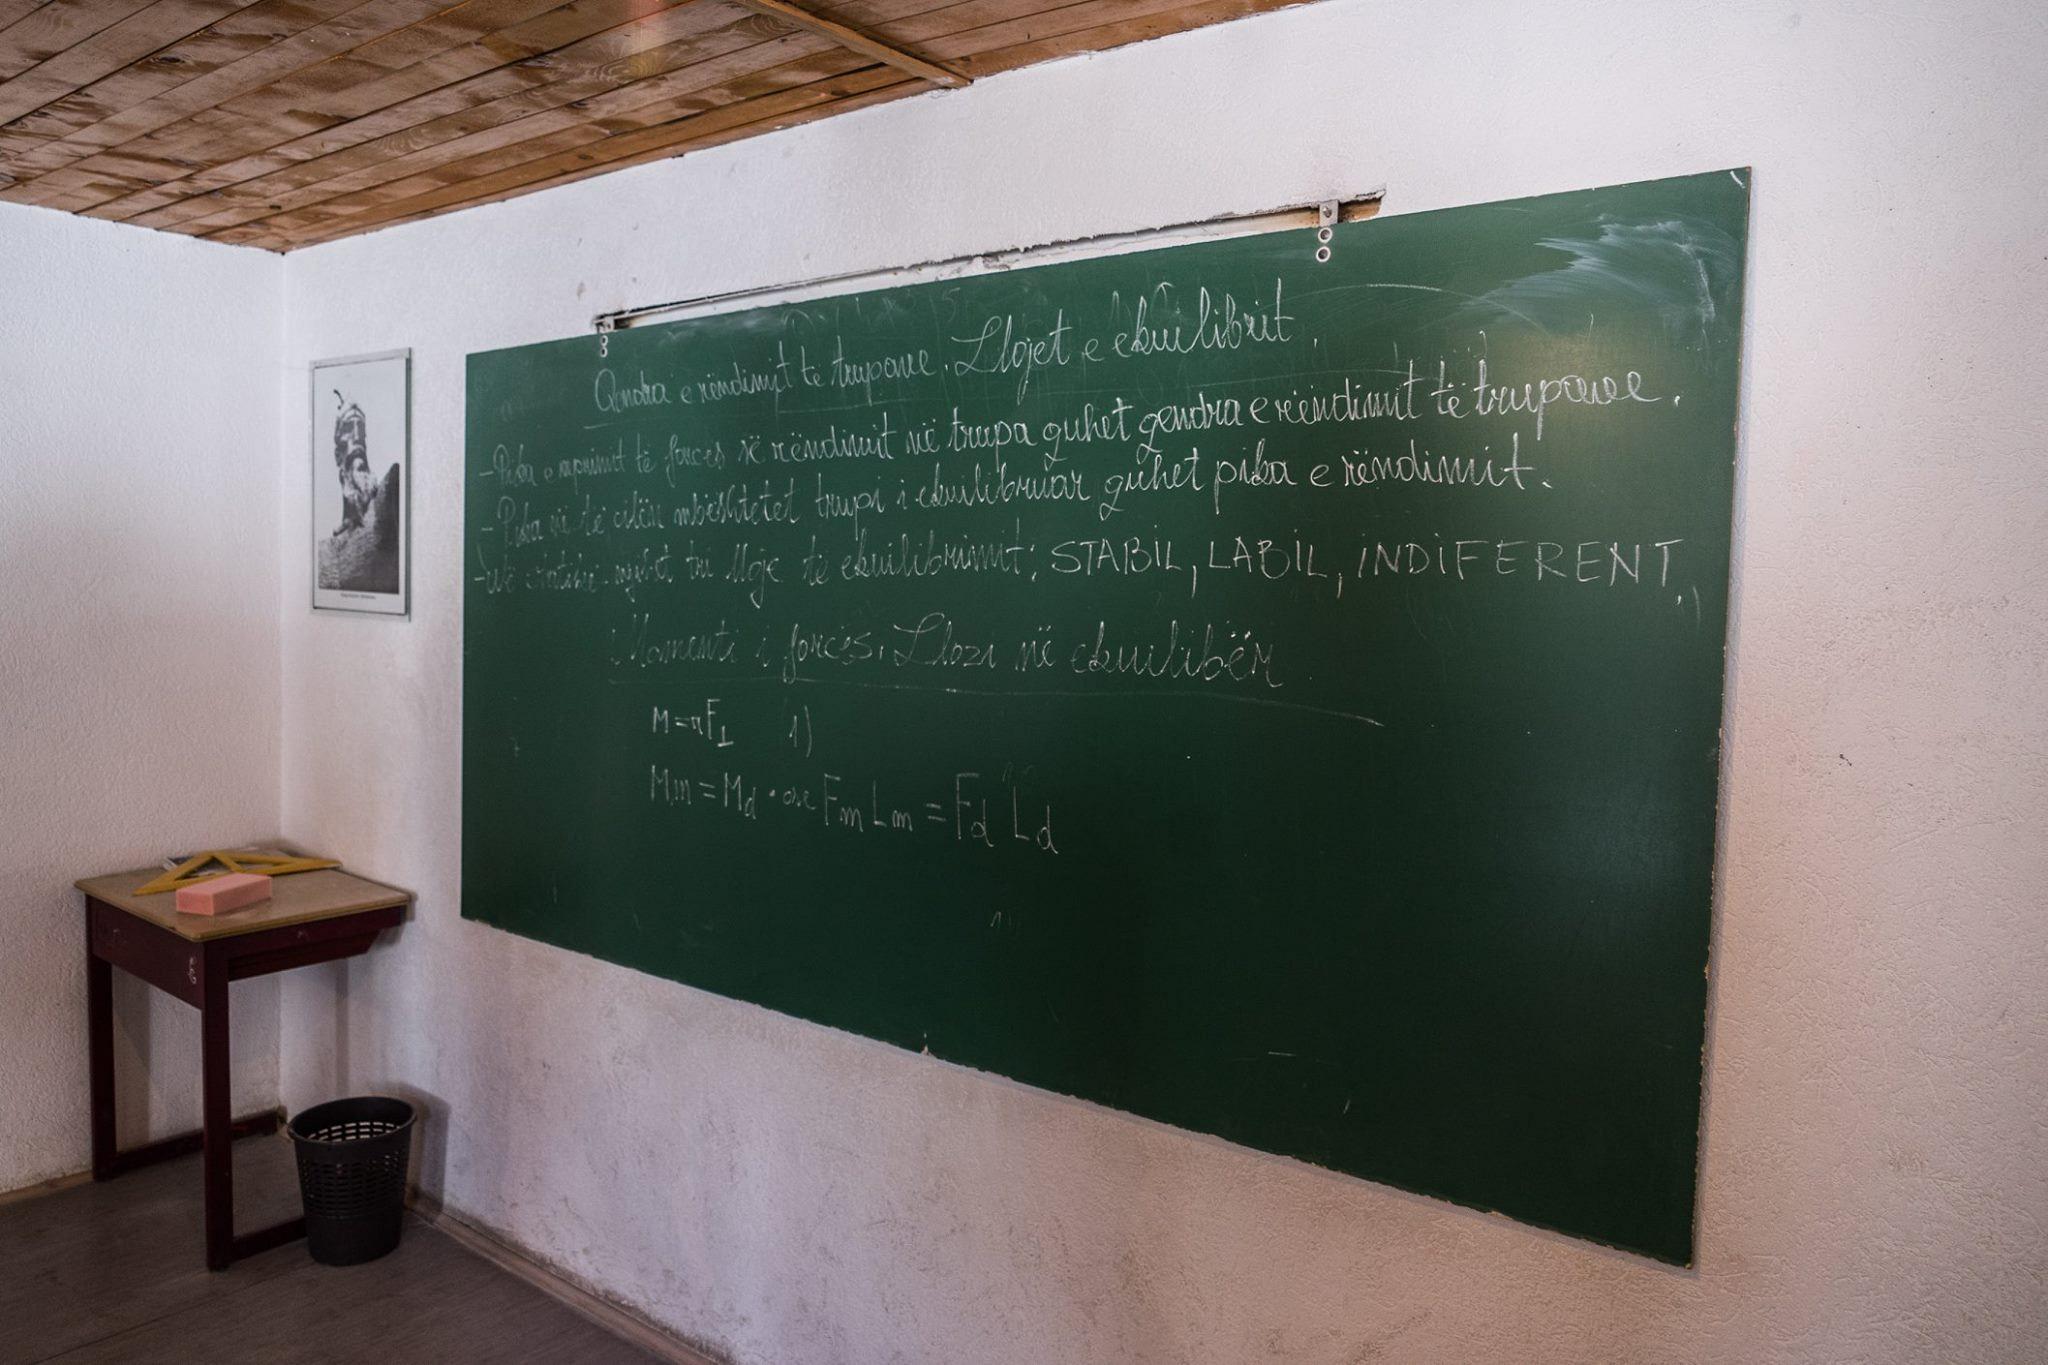 Qendra e rëndimit të trupave. Llojet e ekuilibrit.
- Pika e e forces së rëndimit në trupa quhet qendra e rëndimit të trupave.
- Pika në të cilën mbështetet trupi i ekuilibruar quhet pika e rëndimit.
- Në njihet tri lloje të ekuilibrimit: STABIL, LABIL, INDIFERENT.
Momenti i forcës. Llozi në ekuilibër
M = rF⊥ 1)
Mm = Md ose Fm Lm = Fd Ld